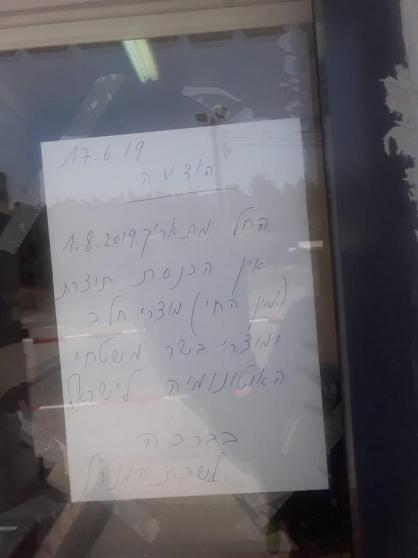 17.6.19
הודעה
החל מתאריך 1.8.2019
אין הכנסת תוצרת
(מן החי) מוצרי חלב
ומוצרי בשר משטחי
האוטונומיה לישראל
בברכה
לשכת המנכ"ל